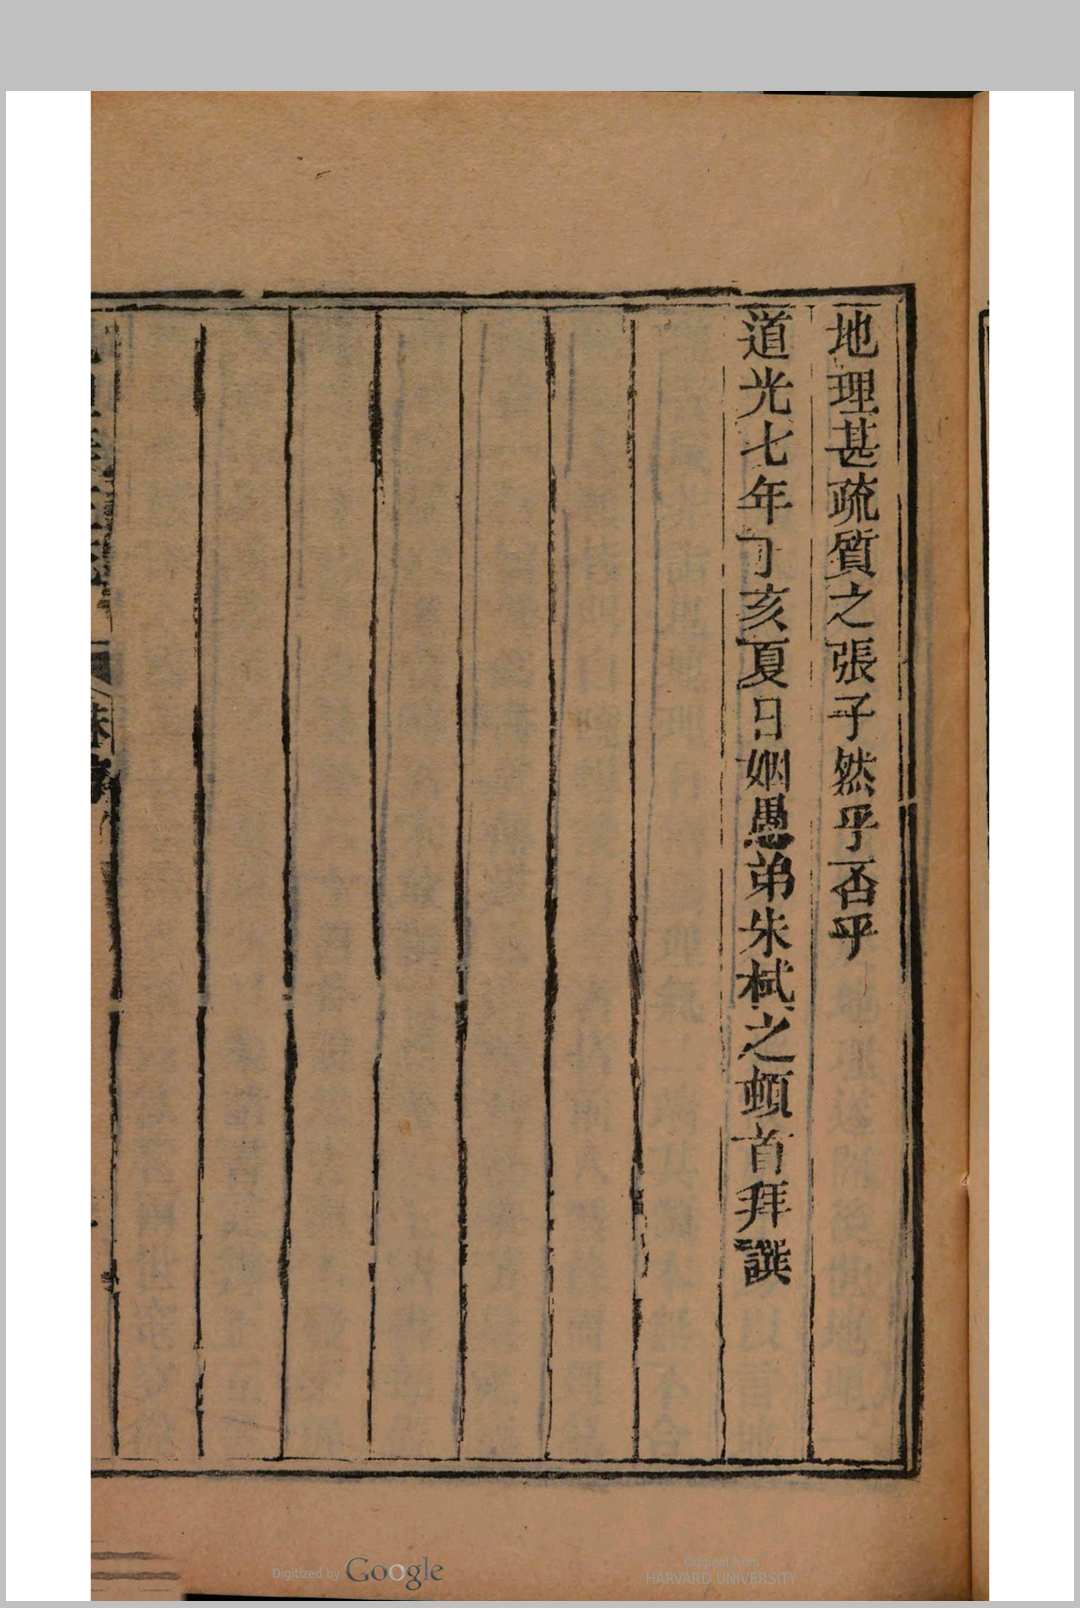 地理甚疏質之張子然乎否乎
道光七年丁亥夏日姻愚弟朱栻之頓首拜譔
Digitized by Google
Original from
HARVARD UNIVERSITY